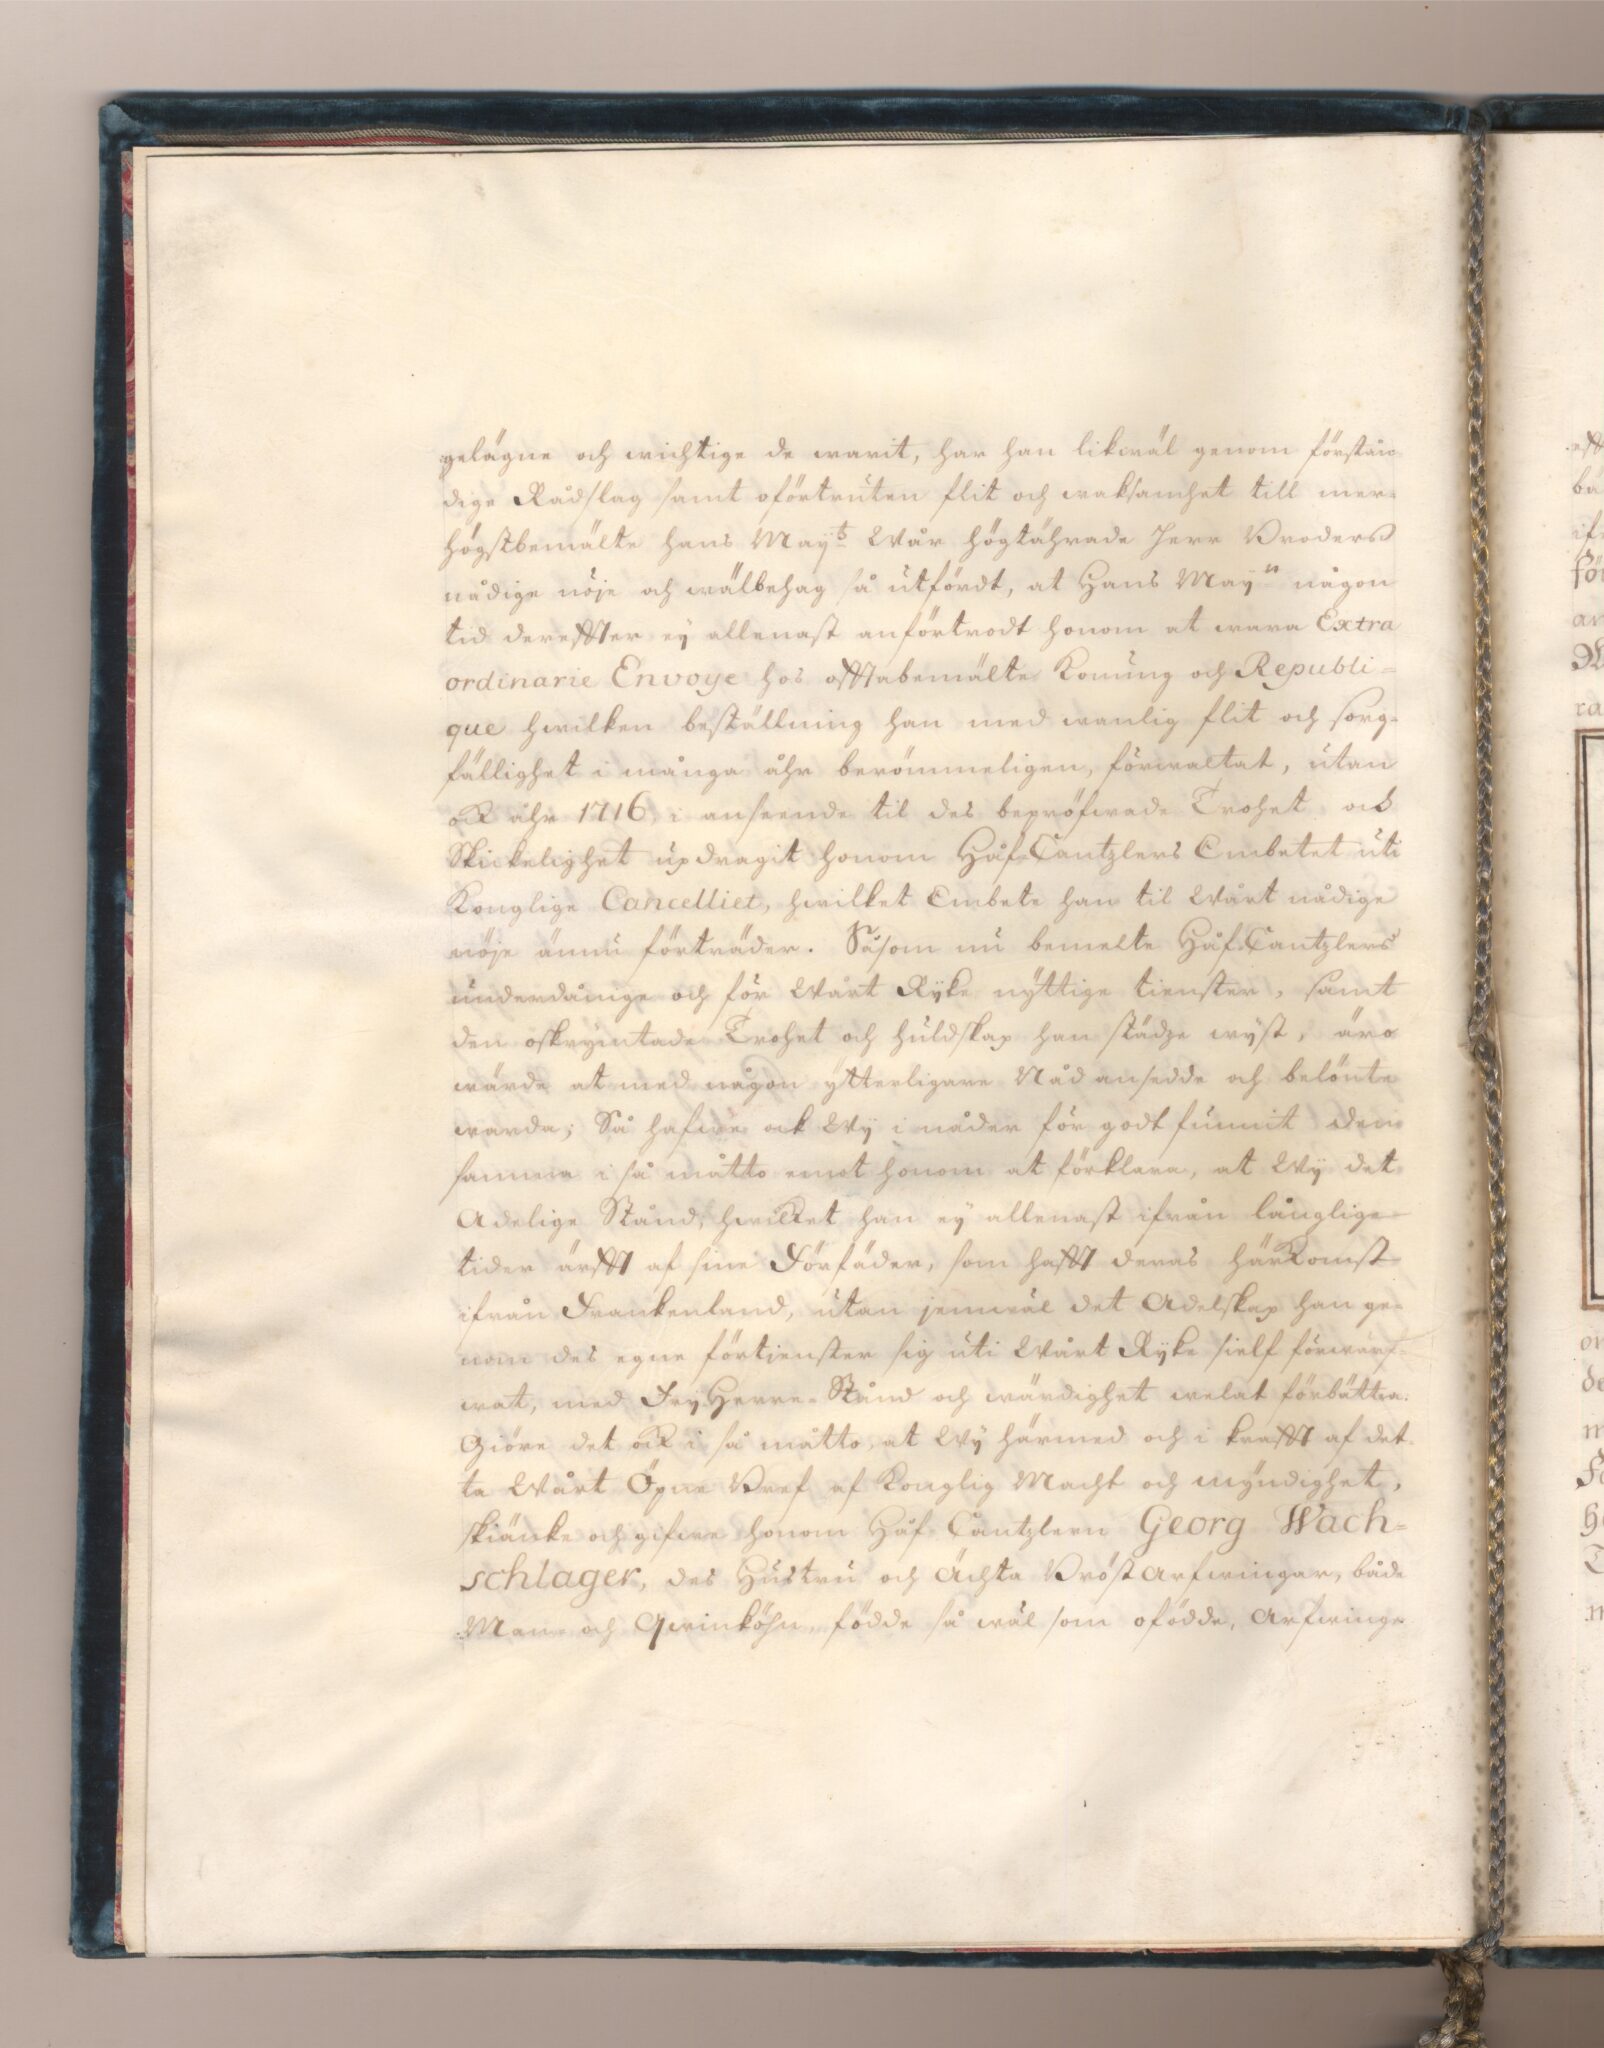 gelägne och wichtige de warit, har han likwäl genom förstän-
dige Rådslag samt oförtruten flit och waksamhet till mer-
högstbemälte hans Maÿt Wår högtährade Herr Broders
nådige nöje och wälbehag så utfördt, at Hans Maÿtt någon
tid dereffter eÿ allenast anförtrodt honom at wara Extra
ordinarie Envoye hos offtabemälte Konung och Republi-
que hwilken beställning han med wanlig flit och sorg-
fällighet i många åhr berömmeligen, förwaltat, utan
ock åhr 1716, i anseende til des bepröfwade Trohet och
Skickelighet updragit honom Håf-Cantzlers Embetet uti
Konglige Cancelliet, hwilket Embete han til Wårt nådige
nöje ännu förträder. Såsom nu bemelte Håf-Cantzlers
underdånige och för Wårt Rÿke nÿttige tienster, samt
den oskrÿmtade Trohet och huldskap han städze wÿst, äro
wärde at med någon ÿtterligare Nåd ansedde och belönte
warda; Så hafwe ock Wÿ i nåder för godt funnit den
samma i så måtto emot honom at förklara, at Wÿ det
Adelige Stånd, hwilket han eÿ allenast ifrån långlige
tider ärfft af sine Förfäder, som hafft deras härkomst
ifrån Frankenland, utan jemwäl det Adelskap han ge-
nom des egne förtjenster sig uti Wårt Rÿke sielf förwärf-
wat, med FrijHerre-Stånd och wärdighet welat förbättra.
Giöre det ock i så måtto, at Wÿ härmed och i krafft af det-
ta Wårt Öpne Bref af Konglig Macht och mÿndighet,
skiänke och gifwe honom Håf Cantzlern Georg Wach-
schlager, des Hustru och Ächta Bröst Arfwingar, både
Man- och Qwinköhn, födde så wäl som ofödde, Arfwinge